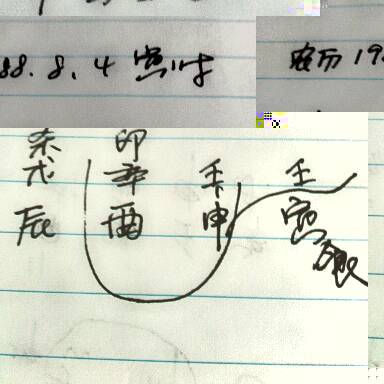 88.8.4 寅时 农历 19
杀 印
戊 辛 壬 壬
辰 酉 申 寅